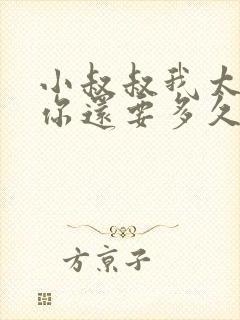 小叔叔我大
你還要多久
方京子